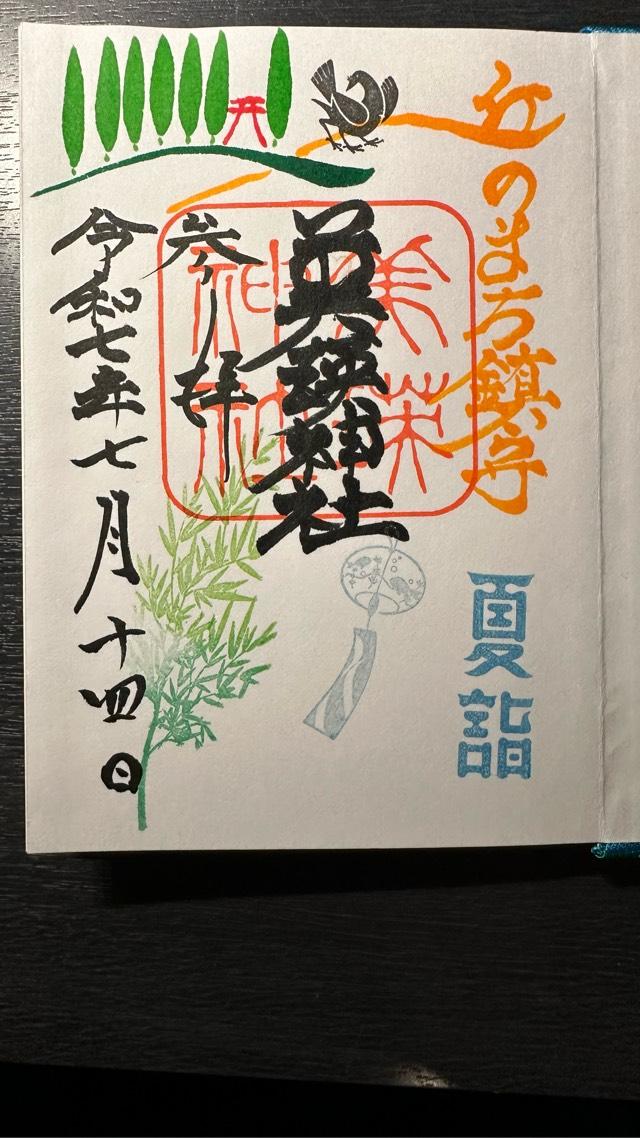 丘のまち鎮守
夏詣
美瑛神社
参拝
令和七年七月十四日